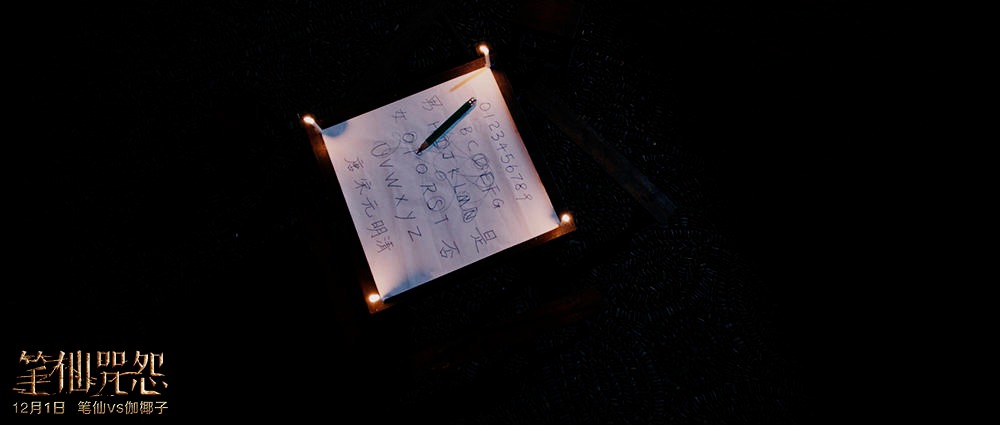 0123456789
BCDEFG
男 HIJKLMN 是
女 OPQRST 否
UVWXYZ
唐宋元明清
笔仙咒怨
12月1日 笔仙vs伽椰子